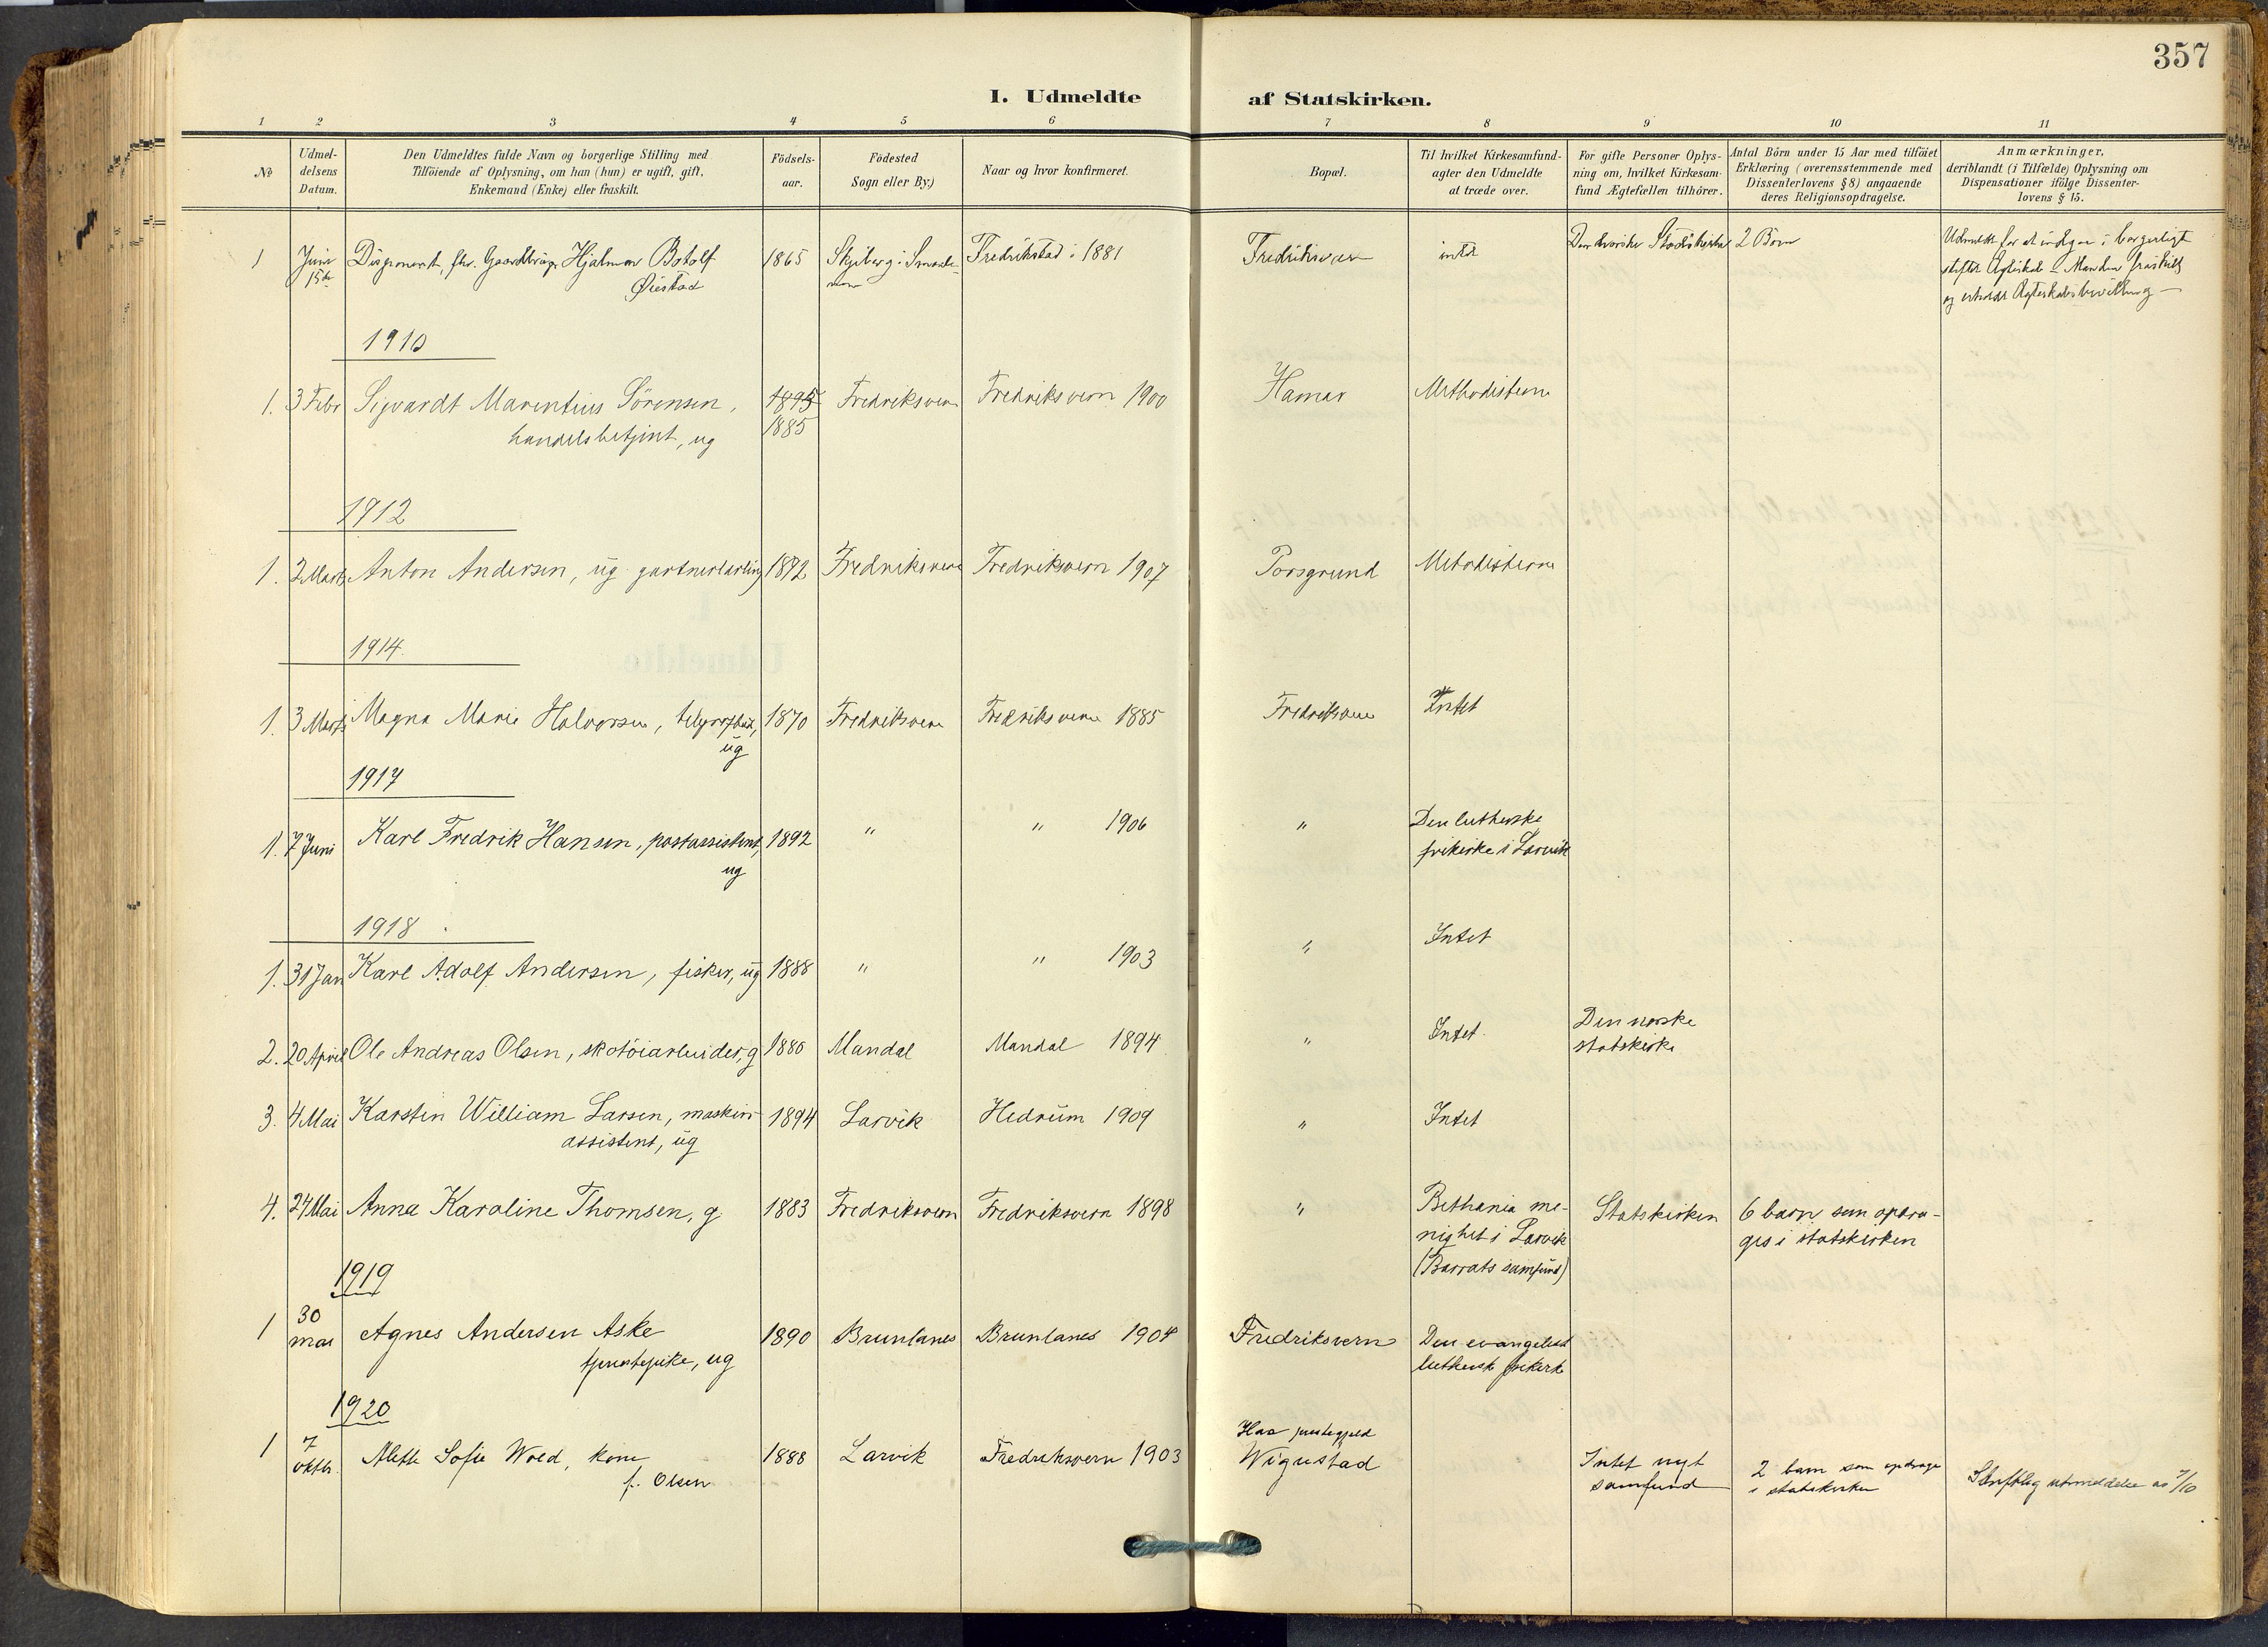 357
I. Udmeldte af Statskirken.
1 2 3 4 5 6 7 8 9 10 11
No
Udmel-
delsens
Datum.
Den Udmeldtes fulde Navn og borgerlige Stilling med
Tilföiende af Oplysning, om han (hun) er ugift, gift,
Enkemand (Enke) eller fraskilt.
Födsels-
aar.
Födested
Sogn eller By.)
Naar og hvor konfirmeret.
Bopæl.
Til hvilket Kirkesamfund-
agter den Udmeldte
at træde over.
For gifte Personer Oplys-
ning om, hvilket Kirkesam-
fund Ægtefællen tilhörer.
Antal Börn under 15 Aar med tilföiet
Erklæring (overensstemmende med
Dissenterlovens § 8) angaaende
deres Religionsopdragelse.
Anmærkninger,
deriblandt (i Tilfælde) Oplysning om
Dispensationer ifölge Dissenter-
lovens § 15.
1 Juni Disponent, Hjalmar Botolf 1865 Skjeberg i Smaale- Fredrikstad i 1881 Fredriksværn intet Den norske Statskirke 2 Börn Udmeldt for at indgaa i borgerligt
15de Øiestad nene stiftet Ægteskab – Manden fraskilt
og erholdt Ægteskabsbevilling –
1910
1. 3 Febr Sigvardt Marentius Sörensen, 1895 Fredriksvern Fredriksvern 1900 Hamar Methodisterne
handelsbetjent, ug 1885
1912
1. 2 Marts Anton Andersen, ug gartnerlærling 1892 Fredriksvern Fredriksvern 1907 Porsgrund Metodisterne
1914.
1. 3 Marts Magna Marie Halvorsen, 1870 Fredriksvern Fredriksvern 1885 Fredriksvern Intet
ug
1917
1. 7 Juni Karl Fredrik Hansen, postassistent, 1892 " " 1906 " Den lutherske
ug frikirke i Larvik
1918
1. 31 Jan Karl Adolf Andersen, fisker, ug 1888 " " 1903 " Intet
2. 20 April Ole Andreas Olsen, skotöiarbeider, g 1880 Mandal Mandal 1894 " Intet. Den norske
statskirke
3. 4 Mai Karsten William Larsen, maskin- 1894 Larvik Hedrum 1909 " Intet
assistent, ug
4. 24 Mai Anna Karoline Thomsen, g 1883 Fredriksvern Fredriksvern 1898 " Bethania me- Statskirken 6 barn som opdra-
nighet i Larvik ges i statskirken
(Barrats samfund)
1919
1 30
mai Agnes Andersen Aske 1890 Brunlanes Brunlanes 1904 Fredriksvern Den evangelisk
tjenestepike, ug luthersk frikirke
1920
1 7
oktb. Alethe Sofie Wold, kone 1888 Larvik Fredriksvern 1903 Wigustad Intet nyt 2 barn som opdrages Skriftlig utmeldelse av 7/10
f. Olsen samfund i statskirken